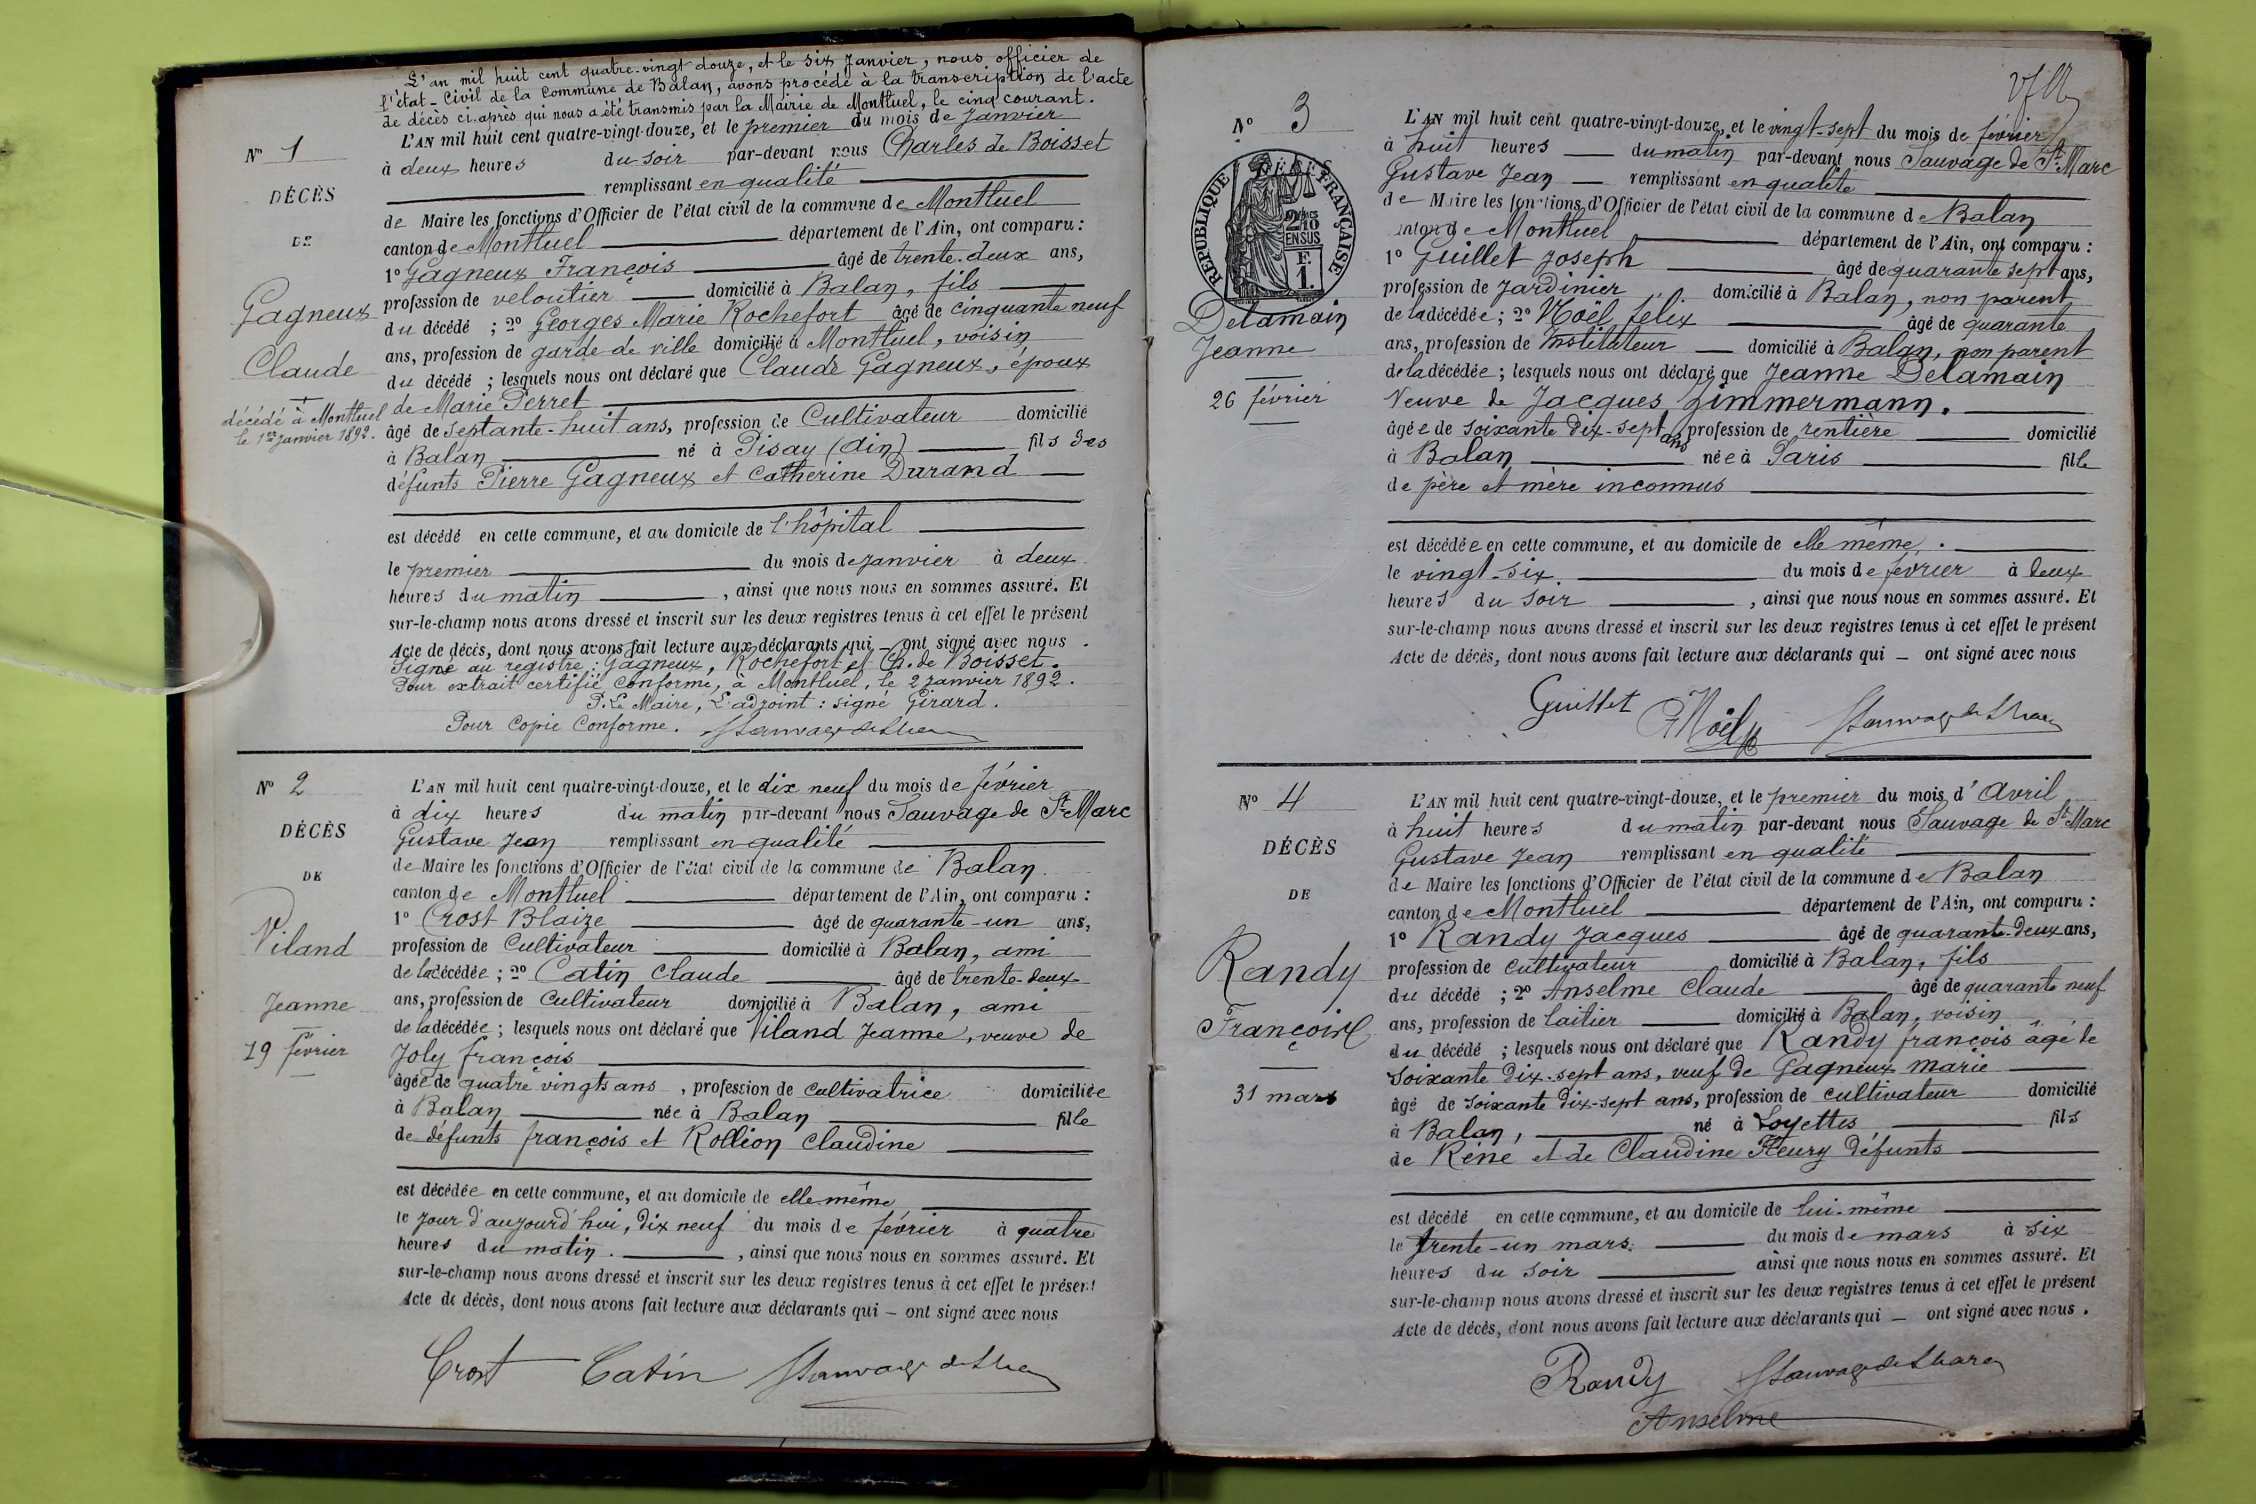 L'an mil huit cent quatre-vingt douze, et le six Janvier, nous officier de
l'état-civil de la commune de Balan, avons procédé à la transcription de l'acte
de décès ci-après qui nous a été transmis par la Mairie de Montluel, le cinq courant.
N° 1
DÉCÈS
DE
Gagneux
Claude
décédé à Montluel
le 1er janvier 1892.
L'AN mil huit cent quatre-vingt-douze, et le premier du mois de Janvier
à deux heures du soir par-devant nous Charles de Boisset
remplissant en qualité
de Maire les fonctions d'Officier de l'état civil de la commune de Montluel
canton de Montluel département de l'Ain, ont comparu :
1° Gagneux François âgé de trente-deux ans,
profession de veloutier domicilié à Balan, fils
du décédé ; 2° Georges Marie Rochefort âgé de cinquante neuf
ans, profession de garde de ville domicilié à Montluel, voisin
du décédé ; lesquels nous ont déclaré que Claude Gagneux, époux
de Marie Perret
âgé de septante-huit ans, profession de Cultivateur domicilié
à Balan né à Pisay (Ain) fils des
défunts Pierre Gagneux et Catherine Durand
est décédé en cette commune, et au domicile de l'hôpital
le premier du mois de Janvier à deux
heures du matin , ainsi que nous nous en sommes assuré. Et
sur-le-champ nous avons dressé et inscrit sur les deux registres tenus à cet effet le présent
Acte de décès, dont nous avons fait lecture aux déclarants qui – ont signé avec nous .
Signé au registre : Gagneux, Rochefort et Ch. de Boisset.
Pour extrait certifié conforme, à Montluel, le 2 Janvier 1892.
P. Le Maire, L'adjoint : signé Girard.
Pour copie conforme.
N° 2
DÉCÈS
DE
Viland
Jeanne
19 février
L'AN mil huit cent quatre-vingt-douze, et le dix neuf du mois de février
à dix heures du matin par-devant nous Sauvage de St Marc
Gustave Jean remplissant en qualité
de Maire les fonctions d'Officier de l'état civil de la commune de Balan
canton de Montluel département de l'Ain, ont comparu :
1° Crost Blaize âgé de quarante-un ans,
profession de Cultivateur domicilié à Balan, ami
de la décédée ; 2° Catin Claude âgé de trente-deux
ans, profession de Cultivateur domicilié à Balan, ami
de la décédée ; lesquels nous ont déclaré que Viland Jeanne, veuve de
Joly françois
âgée de quatre vingts ans , profession de cultivatrice domiciliée
à Balan née à Balan fille
de défunts françois et Rollion Claudine
est décédée en cette commune, et au domicile de elle même
le jour d'aujourd'hui, dix neuf du mois de février à quatre
heures du matin. , ainsi que nous nous en sommes assuré. Et
sur-le-champ nous avons dressé et inscrit sur les deux registres tenus à cet effet le présent
Acte de décès, dont nous avons fait lecture aux déclarants qui – ont signé avec nous
Crost Catin
N° 3
RÉPUBLIQUE FRANÇAISE
2/10 EN SUS
F. 1.
Delamain
Jeanne
26 février
L'AN mil huit cent quatre-vingt-douze, et le vingt-sept du mois de février
à huit heures du matin par-devant nous Sauvage de St Marc
Gustave Jean remplissant en qualité
de Maire les fonctions d'Officier de l'état civil de la commune de Balan
canton de Montluel département de l'Ain, ont comparu :
1° Guillet Joseph âgé de quarante sept ans,
profession de Jardinier domicilié à Balan, non parent
de la décédée ; 2° Noël félix âgé de quarante
ans, profession de Instituteur domicilié à Balan, non parent
de la décédée ; lesquels nous ont déclaré que Jeanne Delamain
Veuve de Jacques Zimmermann.
âgée de soixante dix-sept ans profession de rentière domicilié
à Balan née à Paris fille
de père et mère inconnus
est décédée en cette commune, et au domicile de elle même.
le vingt-six. du mois de février à deux
heures du soir , ainsi que nous nous en sommes assuré. Et
sur-le-champ nous avons dressé et inscrit sur les deux registres tenus à cet effet le présent
Acte de décès, dont nous avons fait lecture aux déclarants qui – ont signé avec nous
Guillet Noël
N° 4
DÉCÈS
DE
Randy
François
31 mars
L'AN mil huit cent quatre-vingt-douze, et le premier du mois d'Avril
à huit heures du matin par-devant nous Sauvage de St Marc
Gustave Jean remplissant en qualité
de Maire les fonctions d'Officier de l'état civil de la commune de Balan
canton de Montluel département de l'Ain, ont comparu :
1° Randy Jacques âgé de quarante-deux ans,
profession de Cultivateur domicilié à Balan, fils
du décédé ; 2° Anselme Claude âgé de quarante neuf
ans, profession de laitier domicilié à Balan, voisin
du décédé ; lesquels nous ont déclaré que Randy françois âgé de
soixante dix-sept ans, veuf de Gagneux marie
âgé de soixante dix-sept ans, profession de cultivateur domicilié
à Balan, né à Loyettes fils
de Réné et de Claudine Fleury défunts
est décédé en cette commune, et au domicile de lui-même
le trente-un mars. du mois de mars à six
heures du soir ainsi que nous nous en sommes assuré. Et
sur-le-champ nous avons dressé et inscrit sur les deux registres tenus à cet effet le présent
Acte de décès, dont nous avons fait lecture aux déclarants qui – ont signé avec nous .
Randy
Anselme